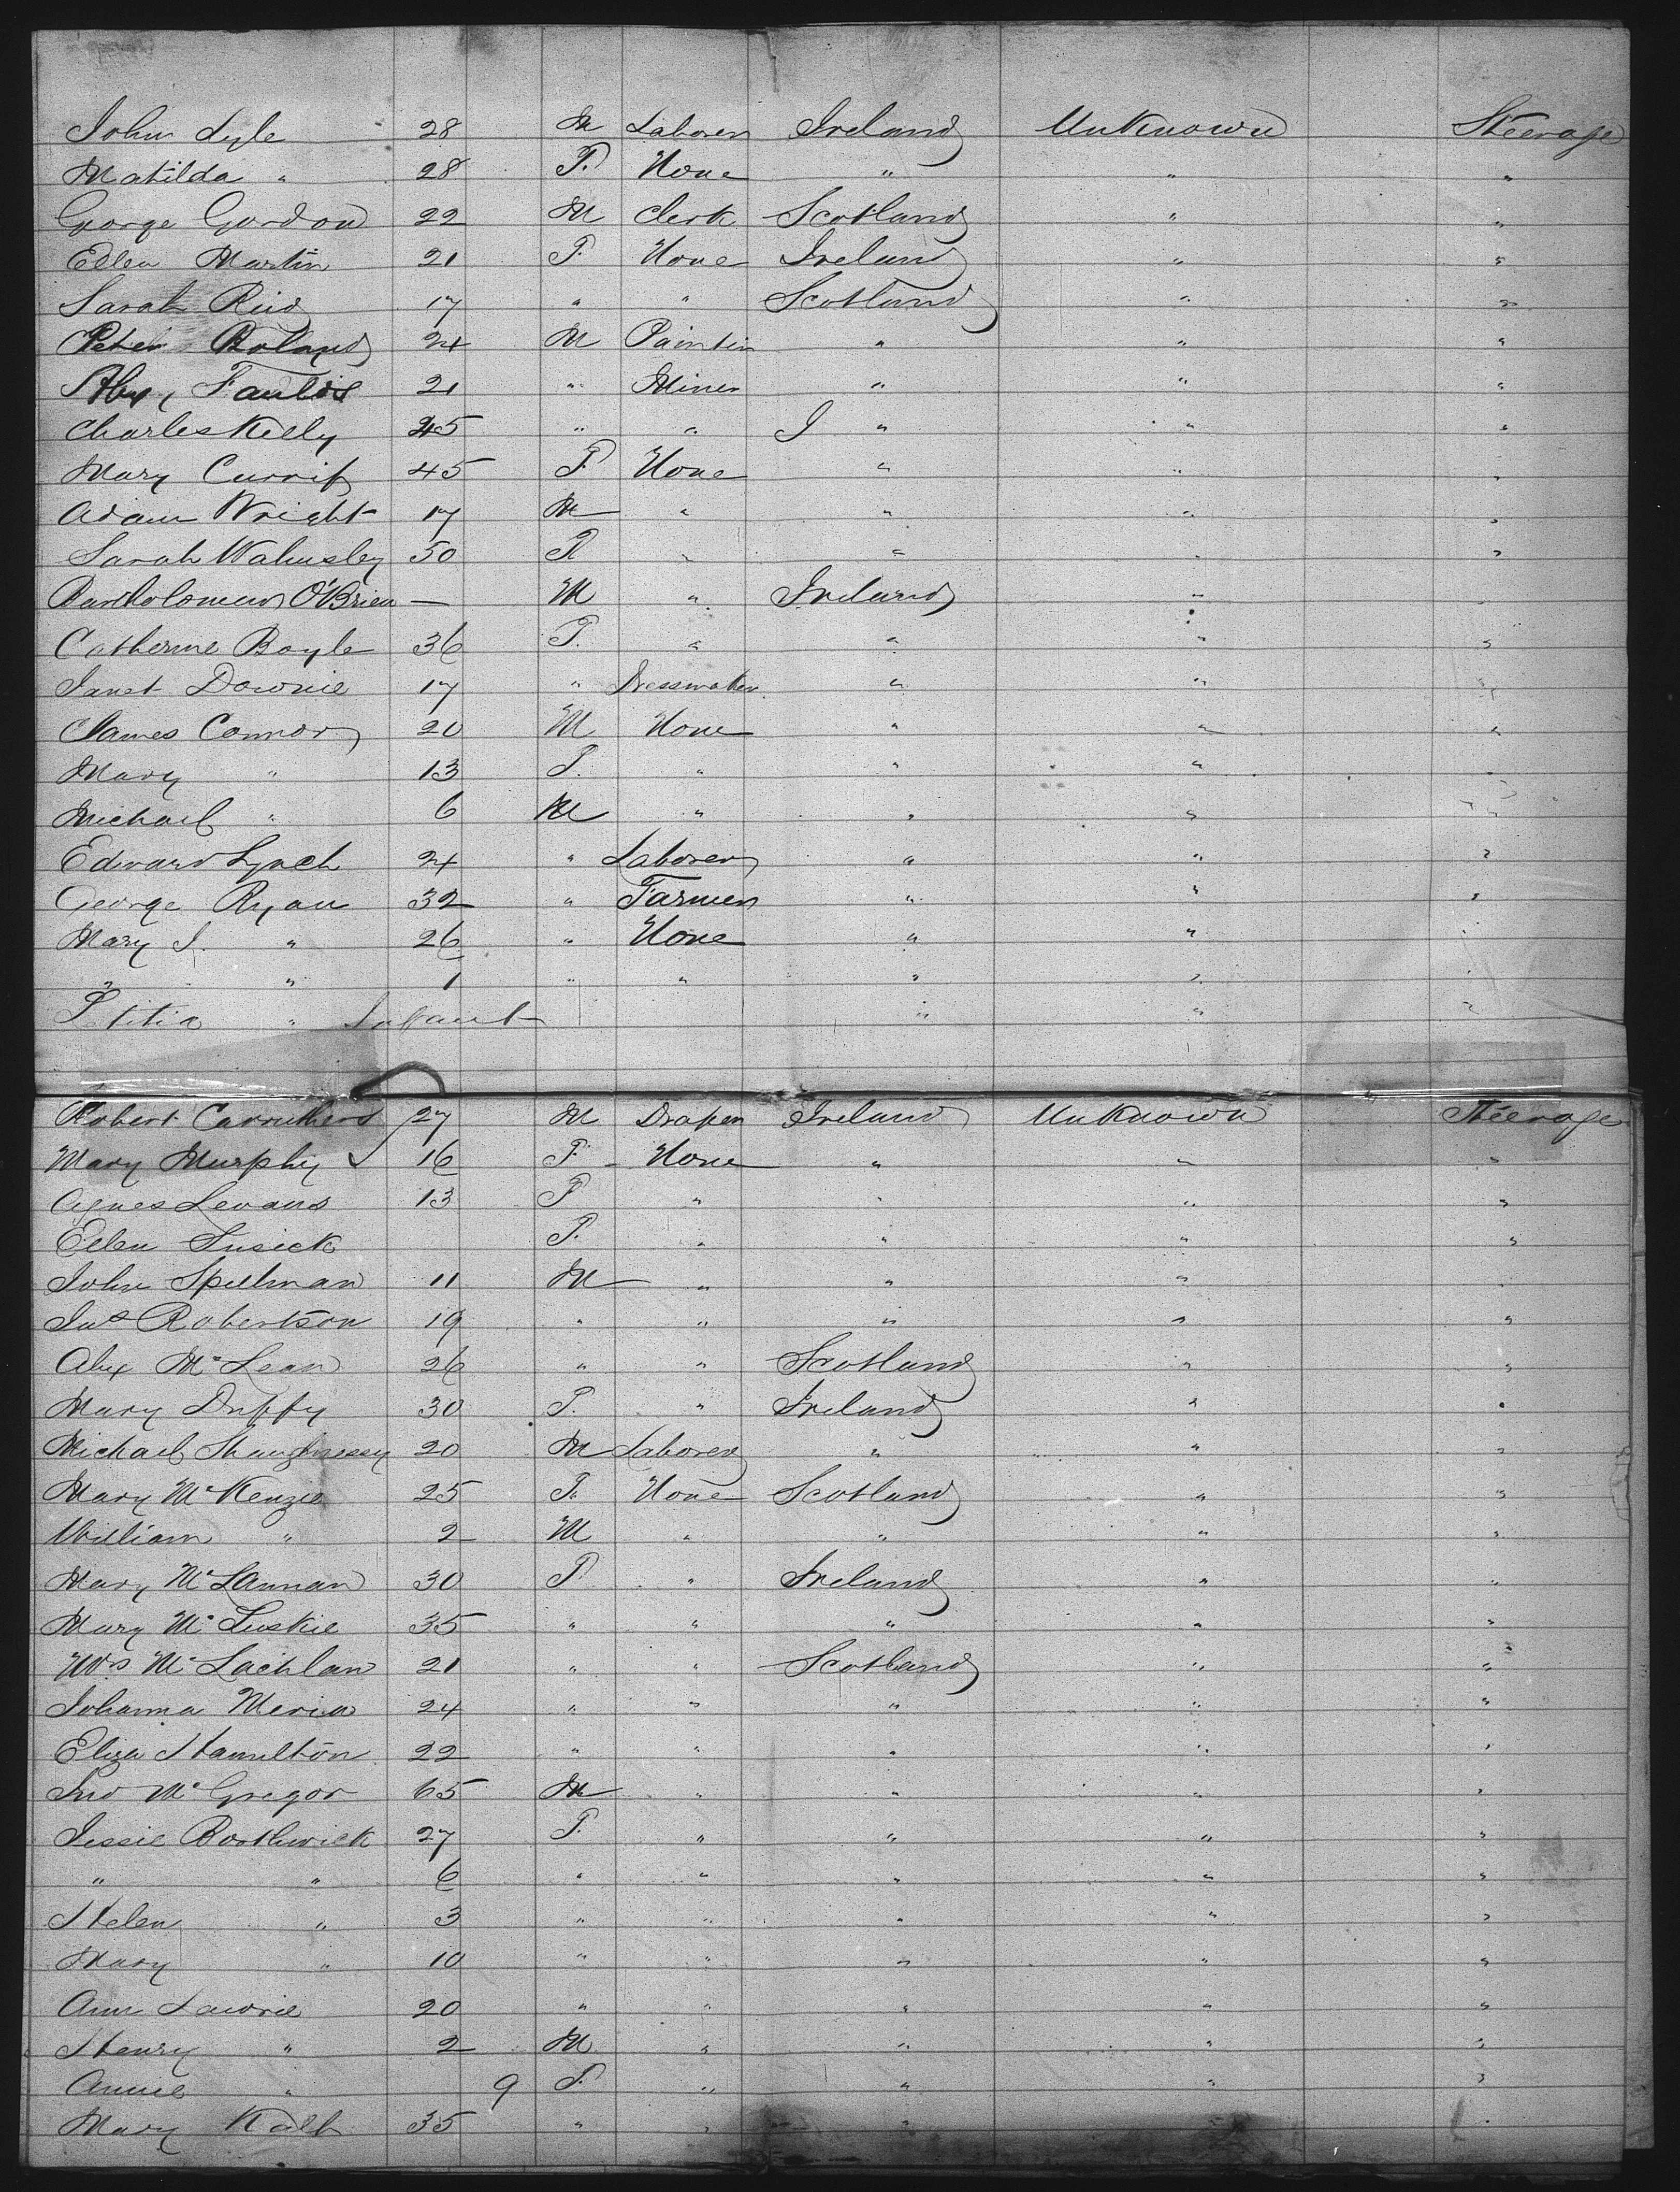 John Lyle 28 M Laborer Ireland Unknown Steerage
Matilda " 28 F. None " " "
George Gordon 22 M Clerk Scotland " "
Ellen Martin 21 F. None Ireland " "
Sarah Reid 17 " " Scotland " "
Peter Boland 24 M Painter " " "
Alex, Faulds 21 " Miner " " "
Charles Kelly 45 " " I " " "
Mary 45 F None " " "
Adam Wright 17 M " " " "
Sarah Walmsley 50 F " " " "
Bartholomew O'Brien — M " Ireland " "
Catherine Boyle 36 F. " " " "
Janet Downie 17 " Dressmaker " " "
James Connor 20 M None " " "
Mary " 13 F. " " " "
Michael " 6 M " " " "
Edward Lynch 24 " Laborer " " "
George Ryan 32 " Farmer " " "
Mary J. " 26 " None " " "
" " 1 " " " " "
" Infant " " "
Robert Carruthers 27 M Draper Ireland Unknown Steerage
Mary Murphy 16 F. None " " "
Agnes Levans 13 F " " " "
Ellen Cusick F. " " " "
John Spelman 11 M " " " "
Jas Robertson 19 " " " " "
Alex McLean 26 " " Scotland " "
Mary Duffy 30 F. " Ireland " "
Michael Shaughnessy 20 M Laborer " " "
Mary McKenzie 25 F. None Scotland " "
William " 2 M " " " "
Mary McLannan 30 F " Ireland " "
Mary McLuskie 35 " " " " "
Mrs McLachlan 21 " " Scotland " "
Johanna 24 " " " " "
Eliza Hamilton 22 " " " " "
Jno McGregor 65 M " " " "
Jessie Borthwick 27 F. " " " "
" " 6 " " " " "
Helen " 3 " " " " "
Mary " 10 " " " " "
Ann Lawrie 20 " " " " "
Henry " 2 M " " " "
Annie " 9 F. " " " "
Mary 35 " " " " "